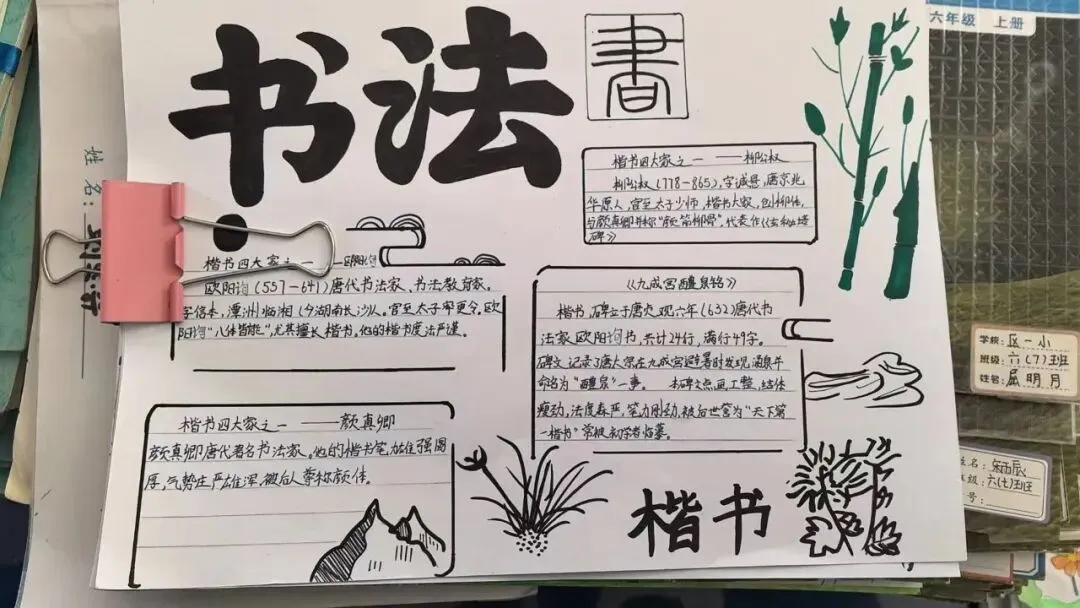 书法
書
六年级 上册
姓名:
楷书四大家之一 ——柳公权
柳公权(778-865),字诚悬,唐京兆
华原人,官至太子少师,楷书大家,创柳体,
与颜真卿并称“颜筋柳骨”,代表作《玄秘塔
碑》
楷书四大家之一 ——欧阳询
欧阳询(557-641)唐代书法家、书法教育家。
字信本,潭洲临湘(今湖南长沙)人。官至太子率更令,欧
阳询“八体皆能”,尤其擅长楷书。他的楷书度法严谨。
《九成宫醴泉铭》
楷书,碑立于唐贞观六年(632)唐代书
法家欧阳询书,共计24行,满行49字。
碑文记录了唐太宗在九成宫避暑时发现涌泉并
命名为“醴泉”一事。 本碑文点画工整,结体
瘦劲,法度森严,笔力刚劲,被后世誉为“天下第
一楷书”常被初学者临摹。
楷书四大家之一 ——颜真卿
颜真卿唐代著名书法家。他的楷书笔力雄强圆
厚,气势庄严雄浑,被后人尊称颜体。
楷书
学校: 区一小
班级: 六(7)班
姓名: 屈明月
姓名:
班级: 六(七)班
号: